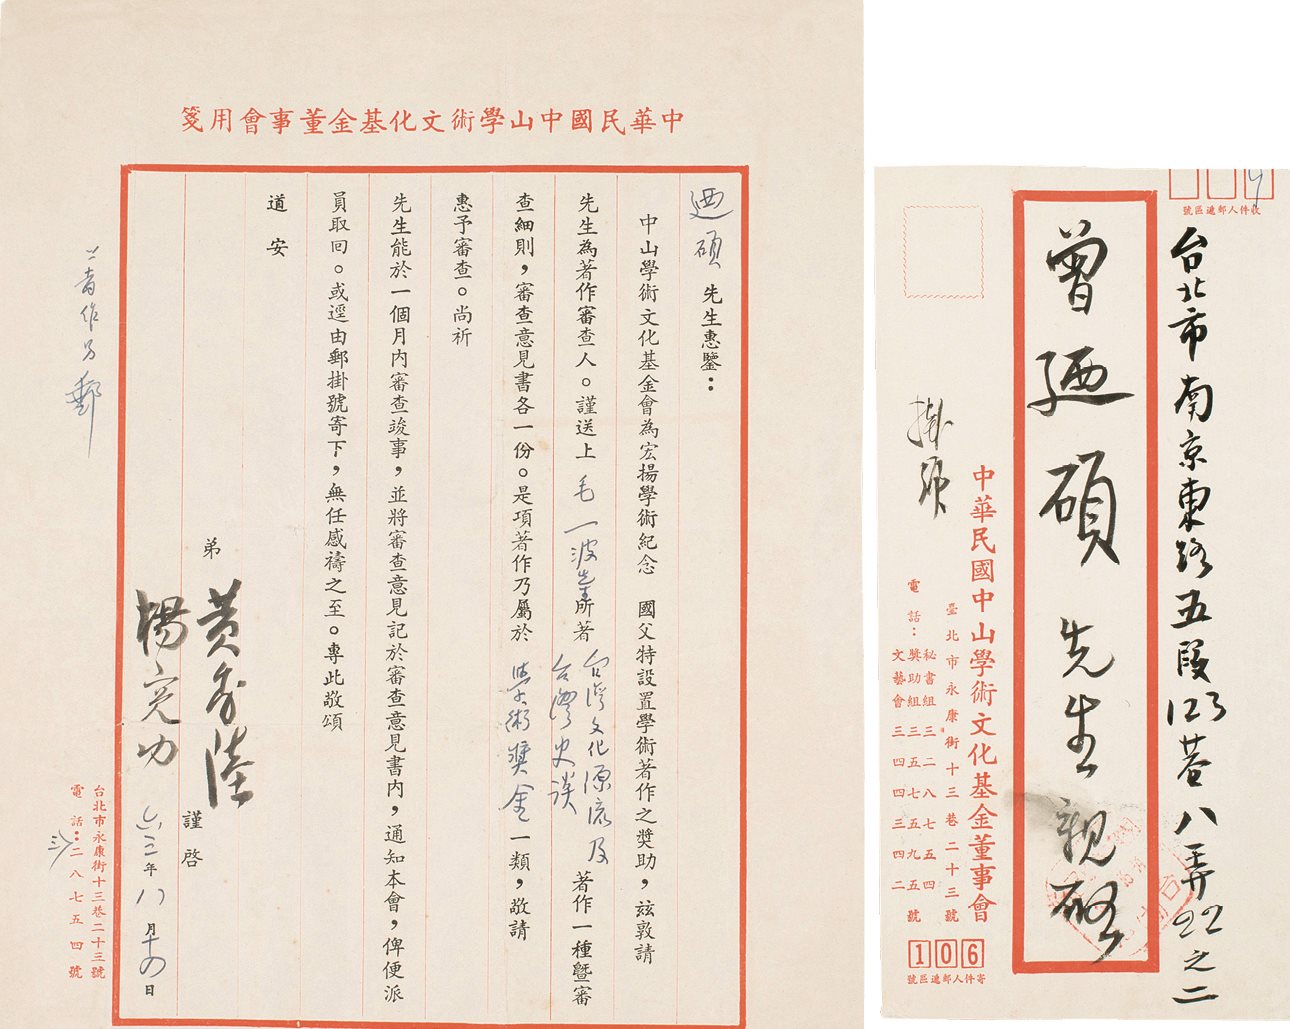 中華民國中山學術文化基金董事會用箋
迺碩先生惠鑒：
中山學術文化基金會為宏揚學術紀念　國父特設置學術著作之獎助，玆敦請
先生為著作審查人。謹送上毛一波先生所著台灣文化源流及台灣史談著作一種暨審
查細則，審查意見書各一份。是項著作乃屬於學術獎金一類，敬請
惠予審查。尚祈
先生能於一個月內審查竣事，並將審查意見記於審查意見書內，通知本會，俾便派
員取回。或逕由郵掛號寄下，無任感禱之至。專此敬頌
道　安
弟
黃季陸
楊亮功
謹啓
六三年八月十四日
台北市永康街十三巷二十三號
電話：二八七五四號
著作另郵
收件人郵遞區號
台北市南京東路五段123巷八弄22之二
曾迺碩先生親啓
中華民國中山學術文化基金董事會
臺北市永康街十三巷二十三號
電話：
秘書組三二八七五四
獎助組三五七五九五號
文藝會三四四三四二
掛號
106
寄件人郵遞區號